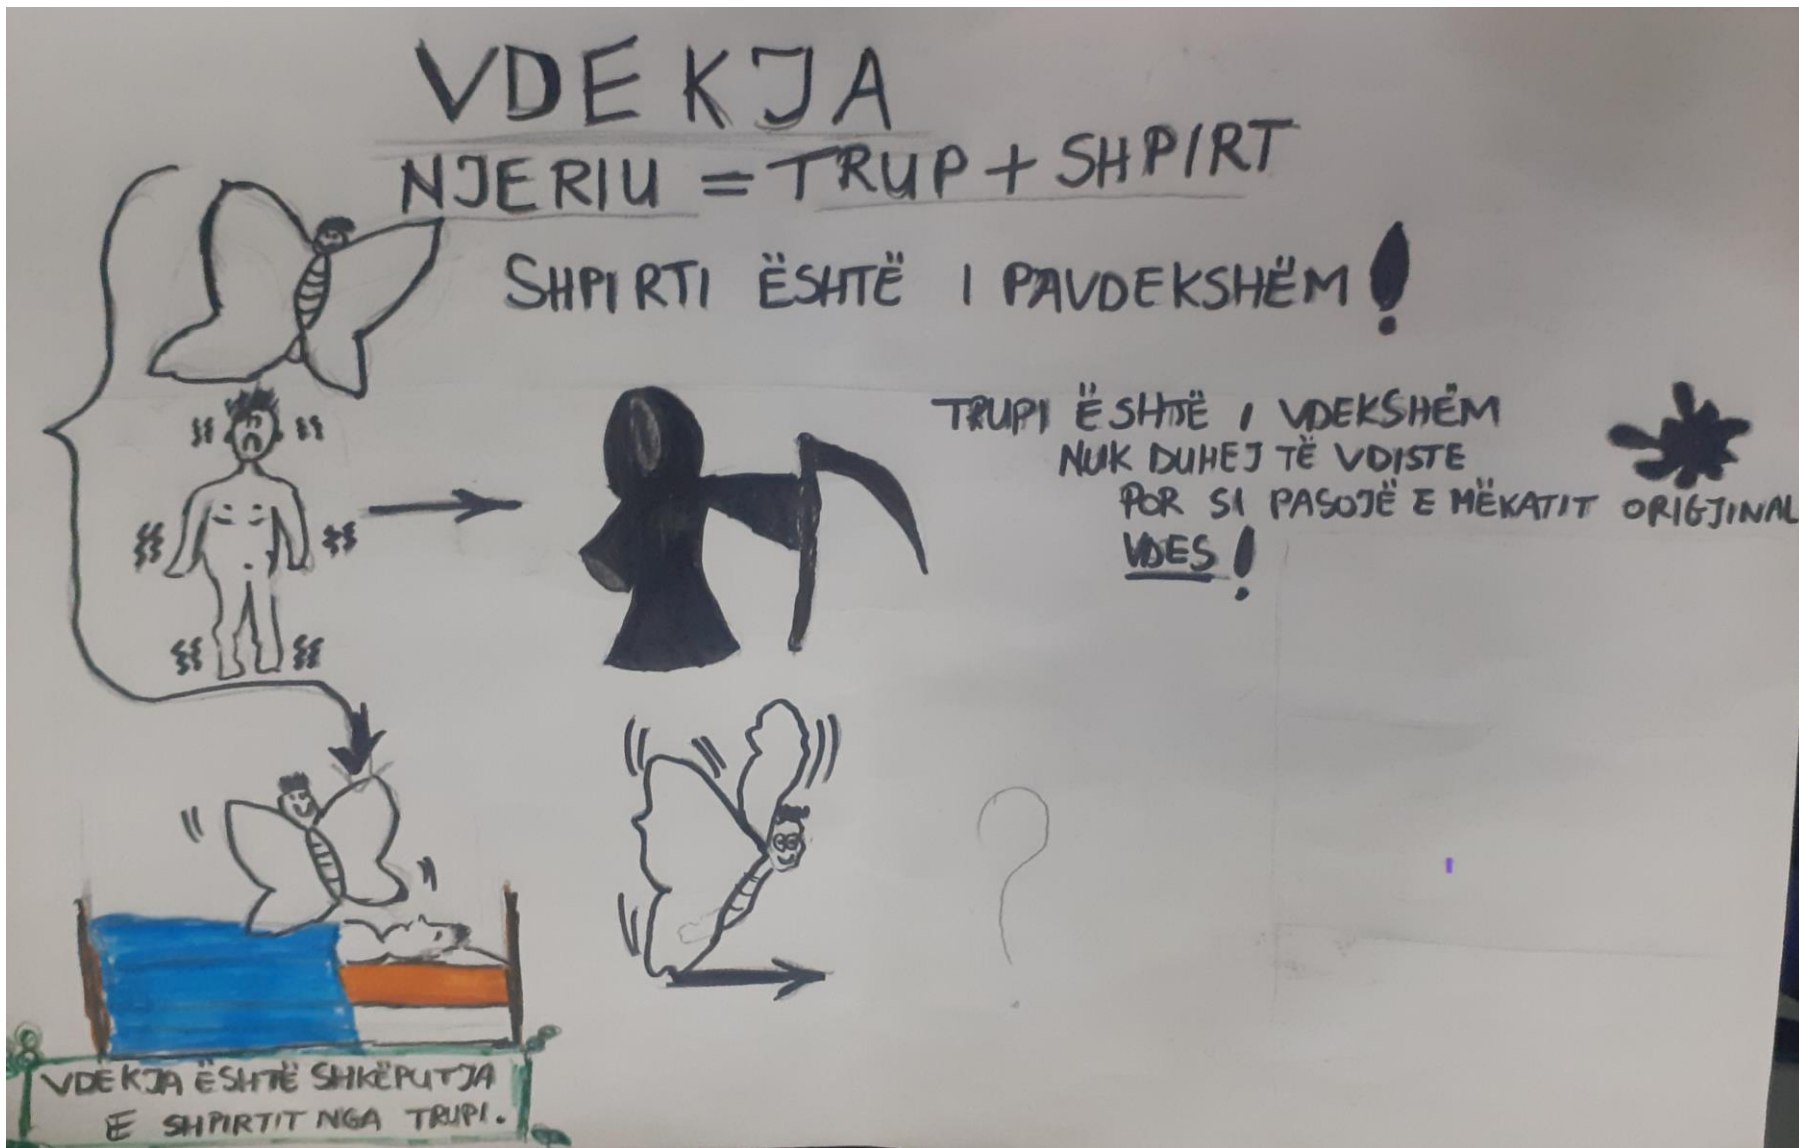 VDEKJA
NJERIU = TRUP + SHPIRT
SHPIRTI ËSHTË I PAVDEKSHËM!
TRUPI ËSHTË I VDEKSHËM
NUK DUHEJ TË VDISTE
POR SI PASOJË E MËKATIT ORIGJINAL
VDES!
?
VDEKJA ËSHTË SHKËPUTJA
E SHPIRTIT NGA TRUPI.